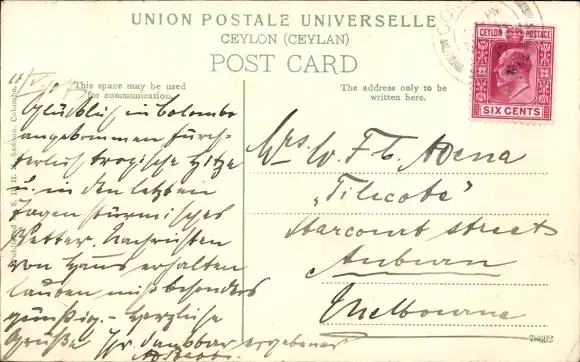 UNION POSTALE UNIVERSELLE
CEYLON (CEYLAN)
POST CARD
CEYLON POSTAGE
SIX CENTS
This space may be used
for communication.
The address only to be
written here.
Glücklich in Colombo
angekommen fürch-
terlich tropische Hitze
u. in den letzten
Tagen stürmisches
Wetter. Nachrichten
von Haus erhalten
lauten nicht besonders
günstig. – Herzliche
Grüße Ihr dankbar ergebener
Mrs W. F. C.
"Tilecote"
Harcourt street
Auburn
Melbourne